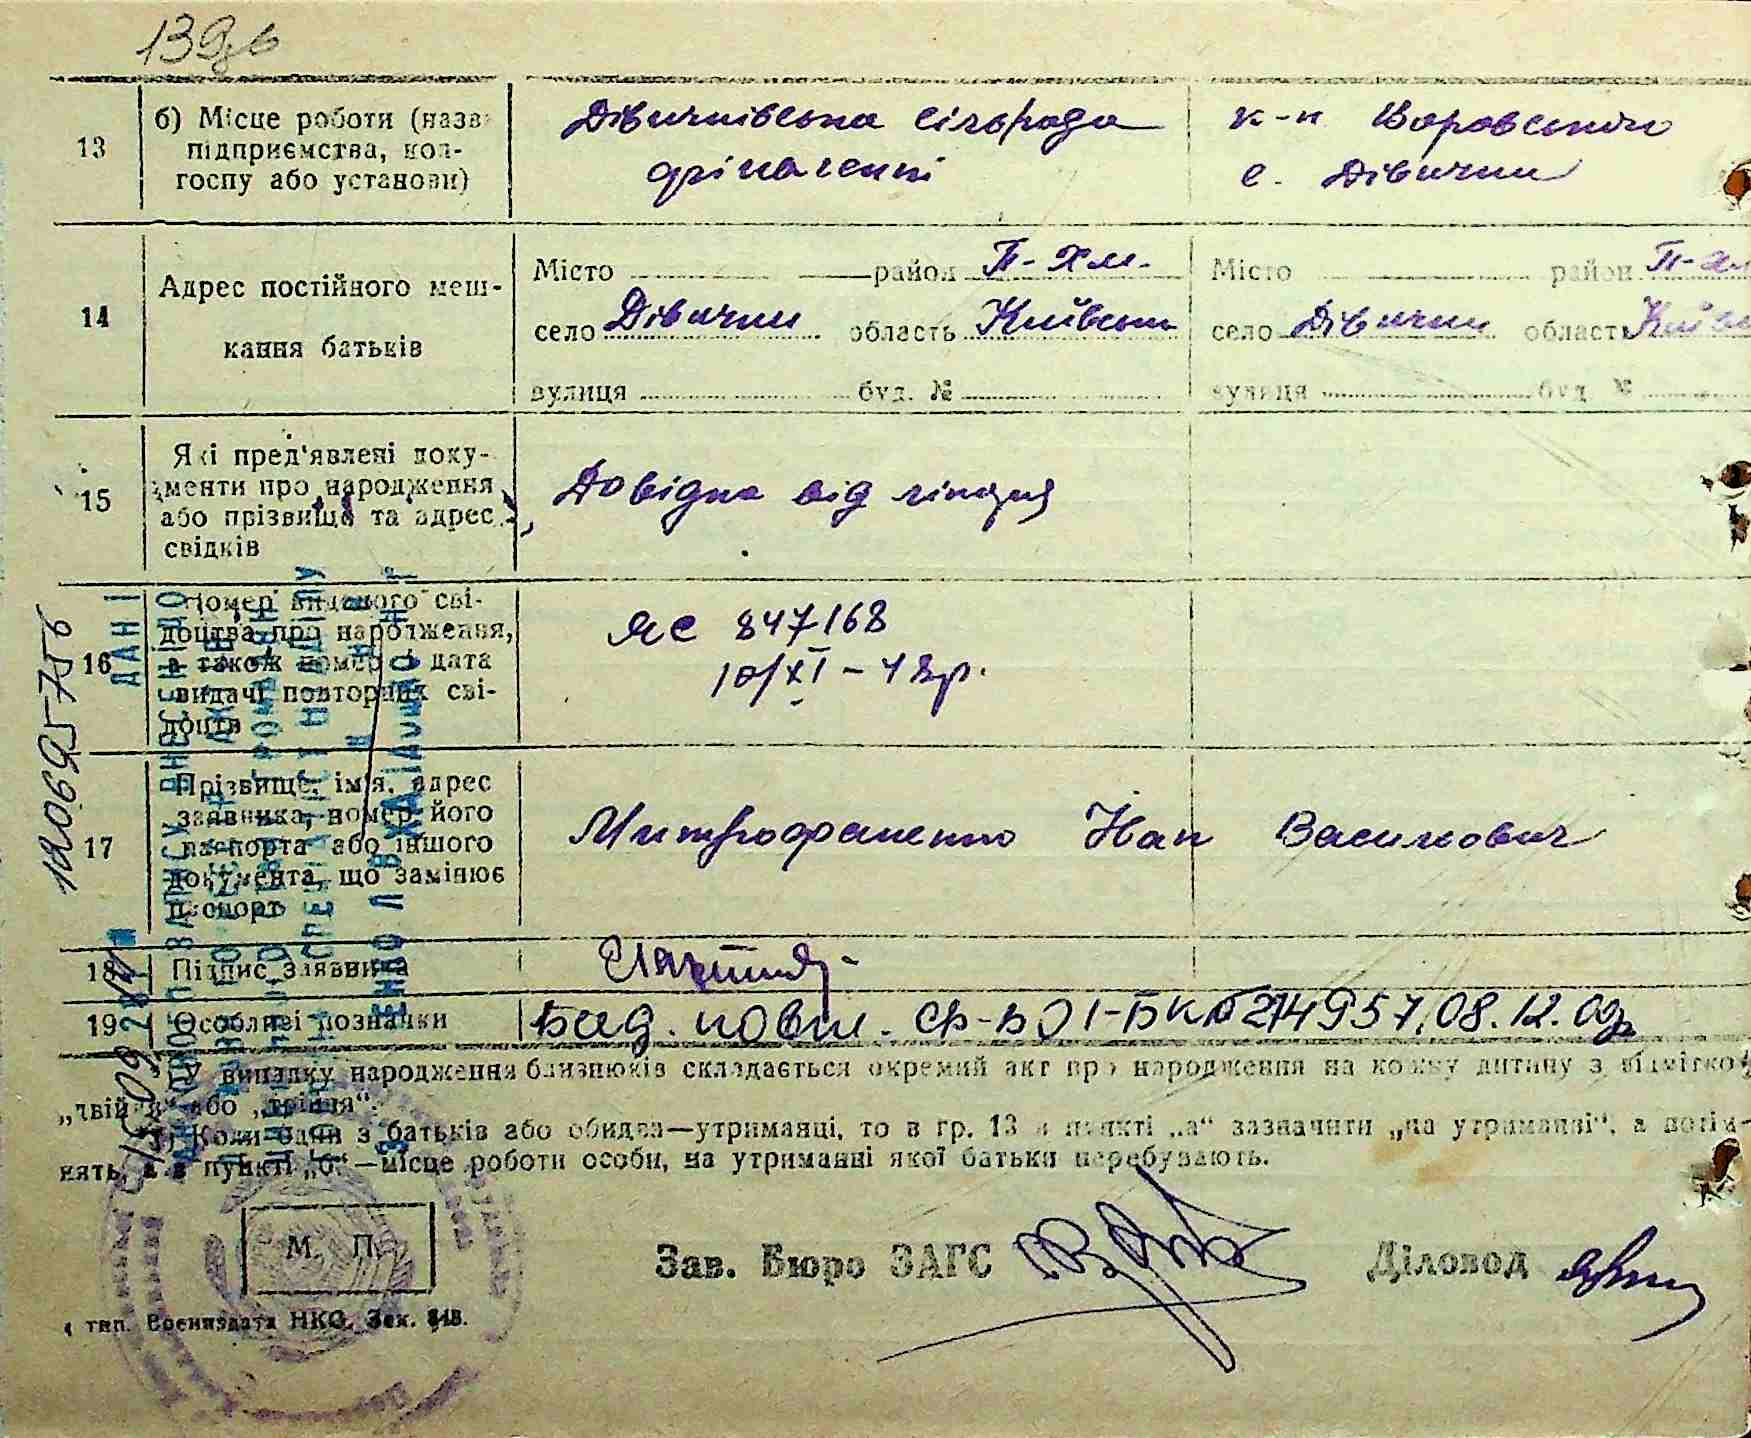 13
б) Місце роботи (назва
підприємства, кол-
госпу або установи)
Дівичківська сільрада
к-п Воровського
с. Дівички
14
Адрес постійного меш-
кання батьків
Місто район П-Хм.
село Дівички область Київськ
вулиця буд. №
Місто район П-Хм
село Дівички область Київ
вулиця буд №
15
Які пред'явлені доку-
менти про народження
або прізвище та адрес
свідків
Довідка від лікаря
16
Номер виданого сві-
доцтва про народження,
а також номер і дата
видачі повторних сві-
доцтв
ЯС 847168
10/XI – 48р.
17
Прізвище, ім'я, адрес
заявника, номер його
паспорта або іншого
документа, що замінює
паспорт
Митрофаненко Іван Василович
18
Підпис заявника
19
Особливі позначки
Вид. повт. св-во І-БК №274957, 08.12.09р
У випадку народження близнюків складається окремий акт про народження на кожну дитину з відмітко
„двійня“ або „трійня“.
Коли один з батьків або обидва—утриманці, то в гр. 13 в пункті „а“ зазначити „на утриманні“, а
в пункті „б“—місце роботи особи, на утриманні якої батьки перебувають.
М. П.
Зав. Бюро ЗАГС
Діловод
тип. Воениздата НКО. Зак. 848.